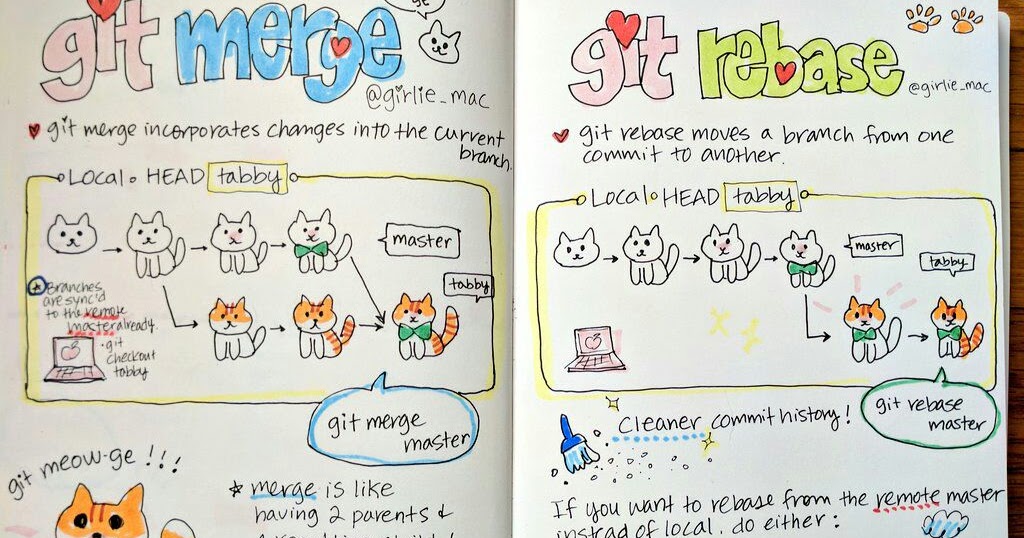 git merge
ge
@girlie_mac
git merge incorporates changes into the current
branch.
Local HEAD tabby
master
tabby
Branches
are sync'd
to the remote
master already.
git
checkout
tabby
git merge
master
git meow-ge !!!
merge is like
having 2 parents &
git rebase
@girlie_mac
git rebase moves a branch from one
commit to another.
Local HEAD tabby
master
tabby
git rebase
master
Cleaner commit history!
If you want to rebase from the remote master
instead of local, do either: